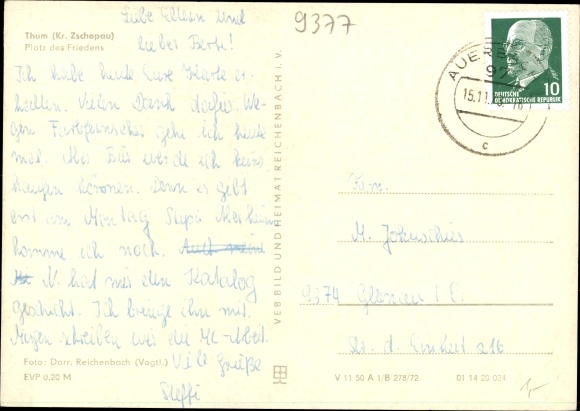 Thum (Kr. Zschopau)
Platz des Friedens
Liebe Eltern und
lieber Bert!
Ich habe heute Eure Karte er-
halten. Vielen Dank dafür. We-
gen Farbfernseher gehe ich heute
mal. Aber Bier werde ich keins
kaufen können. Denn es gebt
erst am Montag
komme ich noch.
N. hat mir den Katalog
geschickt. Ich bringe ihn mit.
Morgen schreiben wir die ML-Arbeit.
Viele Grüße
Steffi
Foto: Darr, Reichenbach (Vogtl.)
EVP 0,20 M
VEB BILD UND HEIMAT REICHENBACH i. V.
9377
AUERB
97
15.11.
c
10
DEUTSCHE
DEMOKRATISCHE REPUBLIK
Fam.
M.
9374
Str. d. Einheit 216
V 11 50 A 1/B 278/72 01 14 20 034